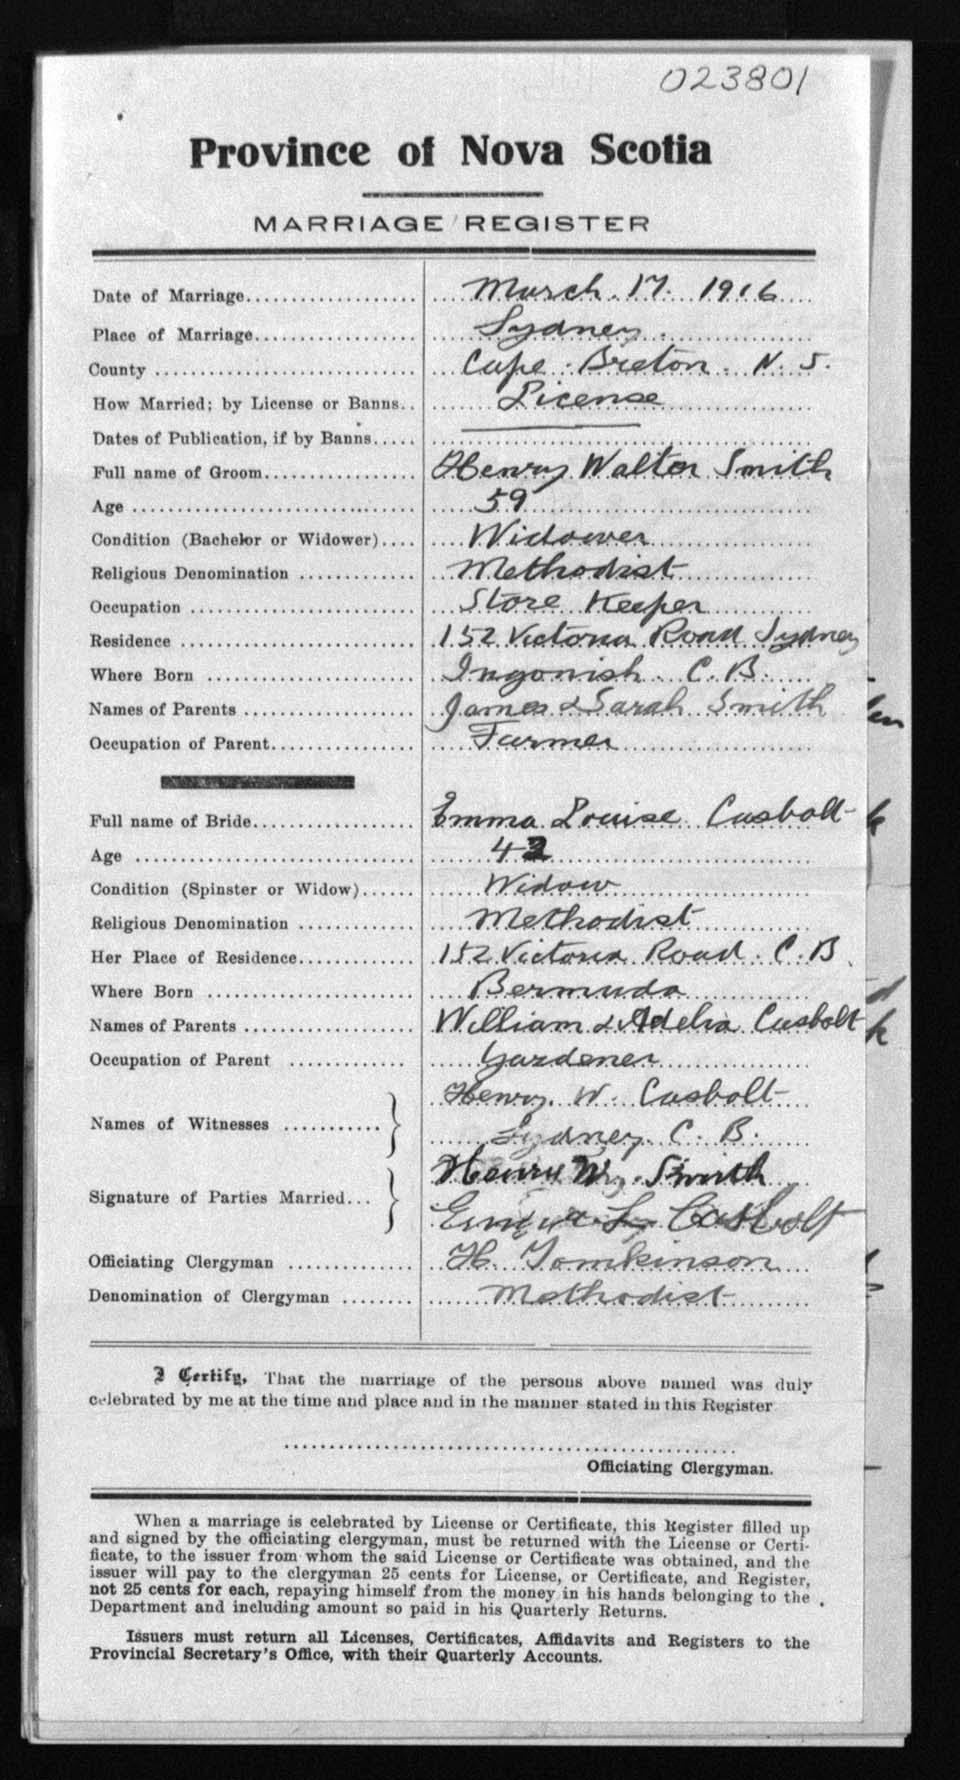 023801
Province of Nova Scotia
MARRIAGE REGISTER
Date of Marriage.................. March. 17. 1916
Place of Marriage.................. Sydney.
County .................. Cape Breton. N. S.
How Married; by License or Banns.. License
Dates of Publication, if by Banns.....
Full name of Groom.................. Henry Walter Smith
Age .................. 59
Condition (Bachelor or Widower).... Widower
Religious Denomination ............. Methodist
Occupation .................. Store Keeper
Residence .................. 152 Victoria Road Sydney
Where Born .................. Ingonish. C. B.
Names of Parents .................. James & Sarah Smith
Occupation of Parent.................. Farmer
Full name of Bride.................. Emma Louise Casbolt
Age .................. 42
Condition (Spinster or Widow)...... Widow
Religious Denomination ............. Methodist
Her Place of Residence............. 152 Victoria Road. C. B.
Where Born .................. Bermuda
Names of Parents .................. William & Adelia Casbolt
Occupation of Parent ............. Gardener
Henry. W. Casbolt
Names of Witnesses ...........
Sydney. C. B.
Henry W. Smith
Signature of Parties Married...
Emma L. Casbolt
Officiating Clergyman ............. H. Tomkinson
Denomination of Clergyman ........ Methodist
I Certify, That the marriage of the persons above named was duly
celebrated by me at the time and place and in the manner stated in this Register
Officiating Clergyman.
When a marriage is celebrated by License or Certificate, this Register filled up
and signed by the officiating clergyman, must be returned with the License or Certi-
ficate, to the issuer from whom the said License or Certificate was obtained, and the
issuer will pay to the clergyman 25 cents for License, or Certificate, and Register,
not 25 cents for each, repaying himself from the money in his hands belonging to the
Department and including amount so paid in his Quarterly Returns.
Issuers must return all Licenses, Certificates, Affidavits and Registers to the
Provincial Secretary's Office, with their Quarterly Accounts.